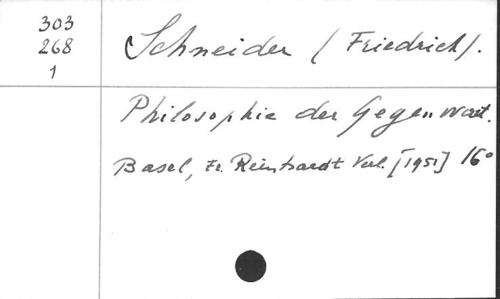 303
268
1
Schneider (Friedrich).
Philosophie der Gegenwart.
Basel, Fr. Reinhardt Verl. [1951] 16°